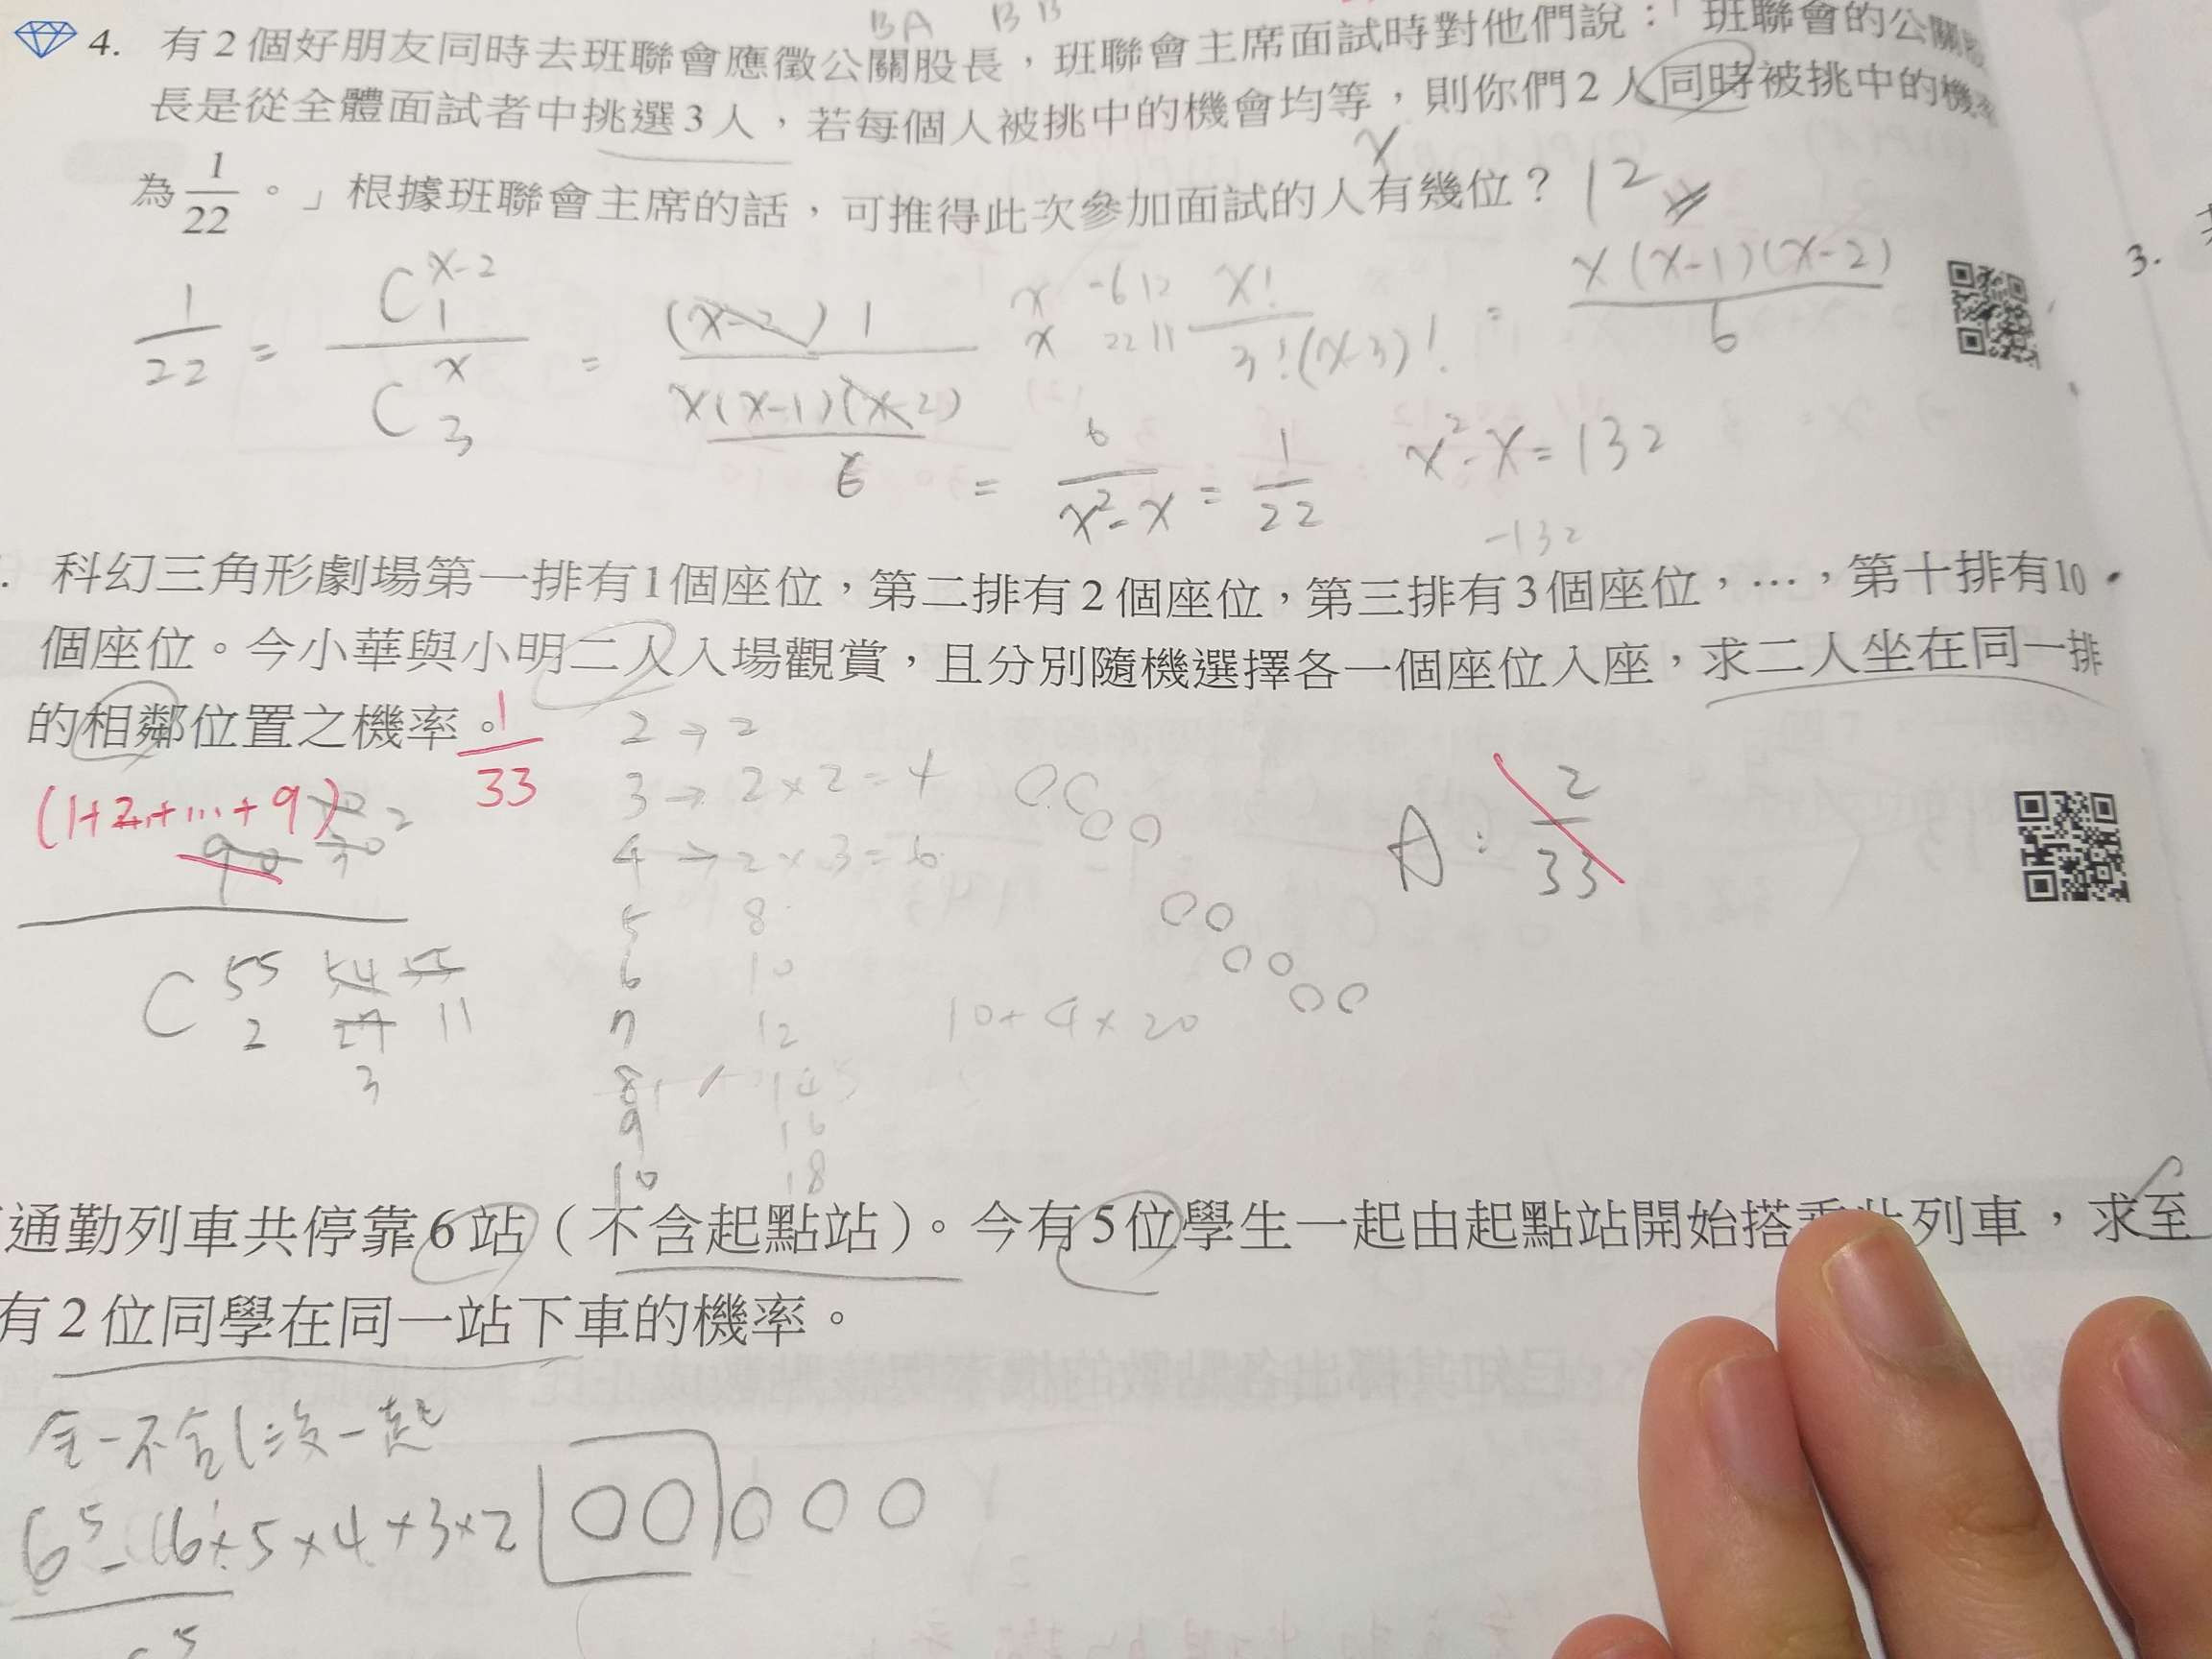 BA BB
4. 有2個好朋友同時去班聯會應徵公關股長，班聯會主席面試時對他們說：「班聯會的公關股
長是從全體面試者中挑選3人，若每個人被挑中的機會均等，則你們2人同時被挑中的機率
x
為 1/22 。」根據班聯會主席的話，可推得此次參加面試的人有幾位？ 12
3.
1/22 = C^{x-2}_1 / C^x_3 = (x-2) 1 / (x(x-1)(x-2) / 6)
x -6 12
x 22 11
x! / 3!(x-3)! = x(x-1)(x-2) / 6
= 6 / (x²-x) = 1/22
x²-x=132
-132
科幻三角形劇場第一排有1個座位，第二排有2個座位，第三排有3個座位，…，第十排有10
個座位。今小華與小明二人入場觀賞，且分別隨機選擇各一個座位入座，求二人坐在同一排
的相鄰位置之機率。 1/33
(1+2+...+9)
90
C 55 2
54 55
27 11
3
2→2
3→2×2=4
4→2×3=6
5 8
6 10
7 12
8 14
9 16
10 18
10+4×20
A: 2/33
通勤列車共停靠6站（不含起點站）。今有5位學生一起由起點站開始搭乘此列車，求至
有2位同學在同一站下車的機率。
6^5-6×5×4×3×2